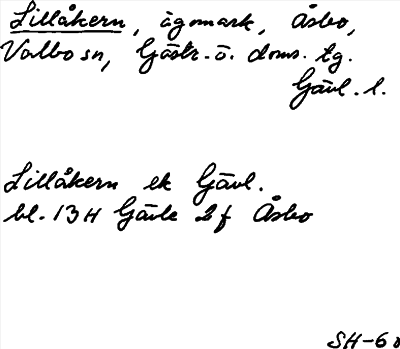 Lillåkern, ägomark, Åsbo,
Valbo sn, Gästr. ö. doms. tg.
Gävl. l.
Lillåkern ek Gävl.
bl. 13H Gävle 2f Åsbo
SH-60